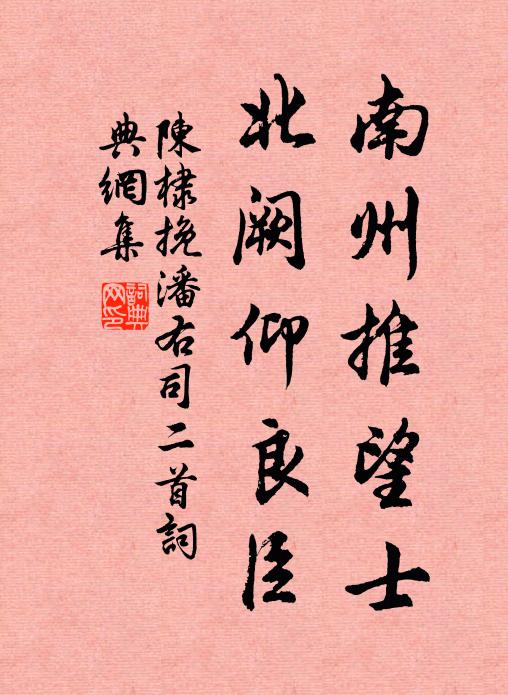 南州推望士
北阙仰良臣
陳棣挽潘右司二首詞
典網集
詞典
网印